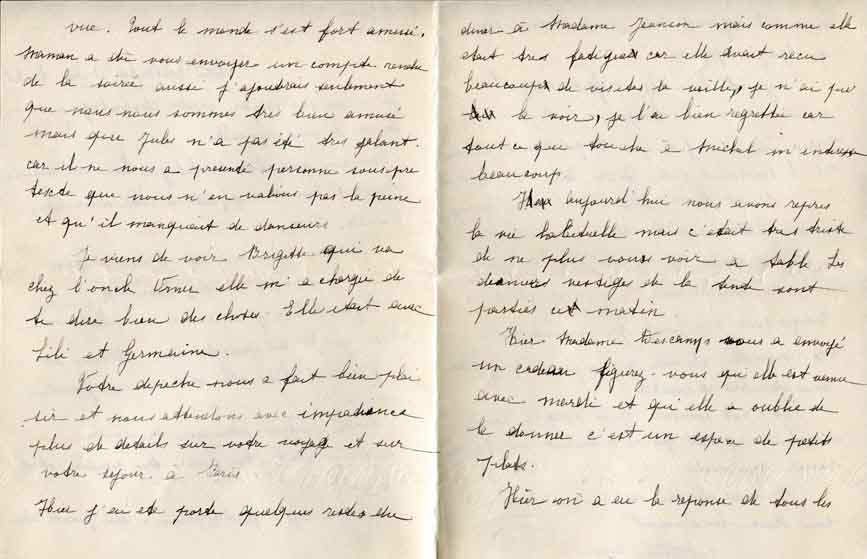 vue. Tout le monde s'est fort amusé.
Maman a du vous envoyer un compte rendu
de la soirée aussi j'ajouterais seulement
que nous nous sommes tres bien amusé
mais que Jules n'a pas été tres galant.
car il ne nous a presenté personne sous pre
texte que nous n'en valions pas la peine
et qu'il manquait de danseurs
Je viens de voir Brigitte qui va
chez l'oncle elle m'a chargée de
te dire bien des choses. Elle etait avec
Lili et Germaine.
Votre depeche nous a fait bien plai
sir et nous attendons avec impatience
plus de details sur votre voyage et sur
votre sejour à Paris
Hier j'ai été porte quelques restes du
diner à Madame Jeancon mais comme elle
etait tres fatiguée car elle avait recu
beaucoup de visites la veille, je n'ai pu
la voir, je l'ai bien regretté car
tout ce que touche à Michel m'interesse
beaucoup.
aujourd'hui nous avons repris
la vie habituelle mais c'etait tres triste
de ne plus vous voir a table Les
derniers vestiges de la tente sont
parties ce matin
Hier Madame Descamps vous a envoyé
un cadeau figurez-vous qu'elle est venue
avec mardi et qu'elle a oublié de
le donner c'est un espece de petits
plats.
Hier on a eu la reponse de tous les